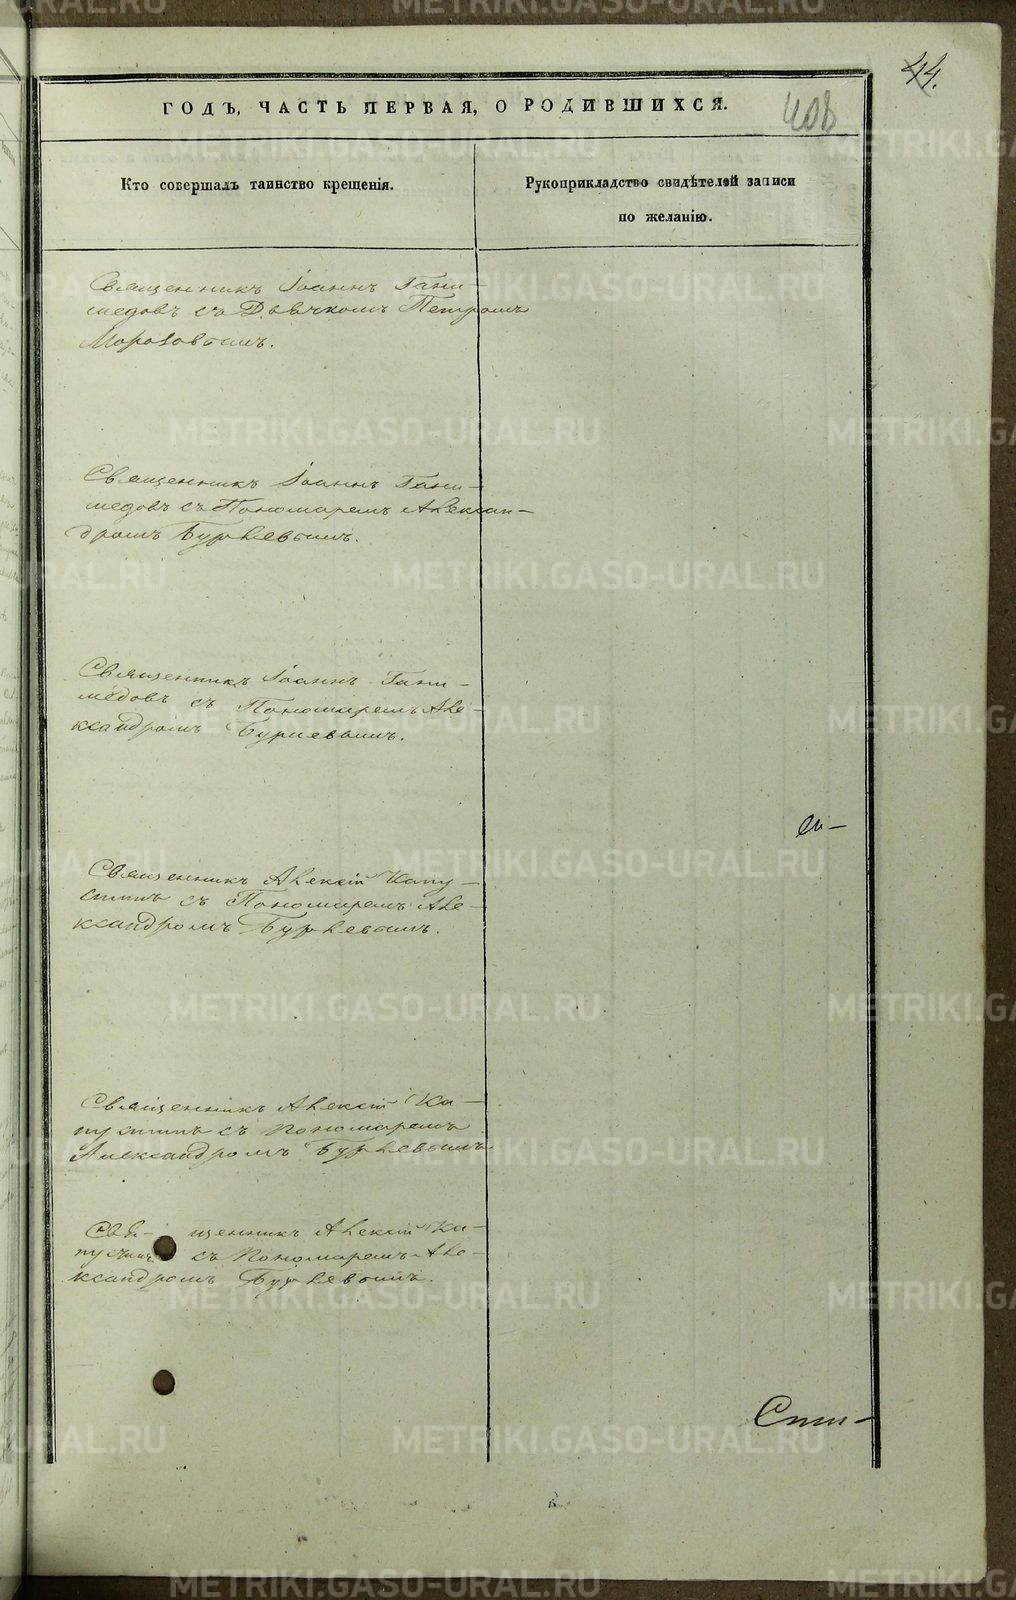 44.
ГОДЪ, ЧАСТЬ ПЕРВАЯ, О РОДИВШИХСЯ.
408
Кто совершалъ таинство крещенія.
Рукоприкладство свидѣтелей записи
по желанію.
Священникъ Іоаннъ Гани-
медовъ съ Дьячкомъ Петромъ
Морозовымъ.
Священникъ Іоаннъ Гани-
медовъ съ Пономаремъ Алексан-
дромъ Бурлевымъ.
Священникъ Іоаннъ Гани-
медовъ съ Пономаремъ Але-
ксандромъ Бурлевымъ.
Священникъ Алексій Капу-
стинъ съ Пономаремъ Але-
ксандромъ Бурлевымъ.
Священникъ Алексій Ка-
пустинъ съ Пономаремъ
Александромъ Бурлевымъ
Свя- щенникъ Алексій Ка-
пустинъ съ Пономаремъ Але-
ксандромъ Бурлевымъ.
METRIKI.GASO-URAL.RU